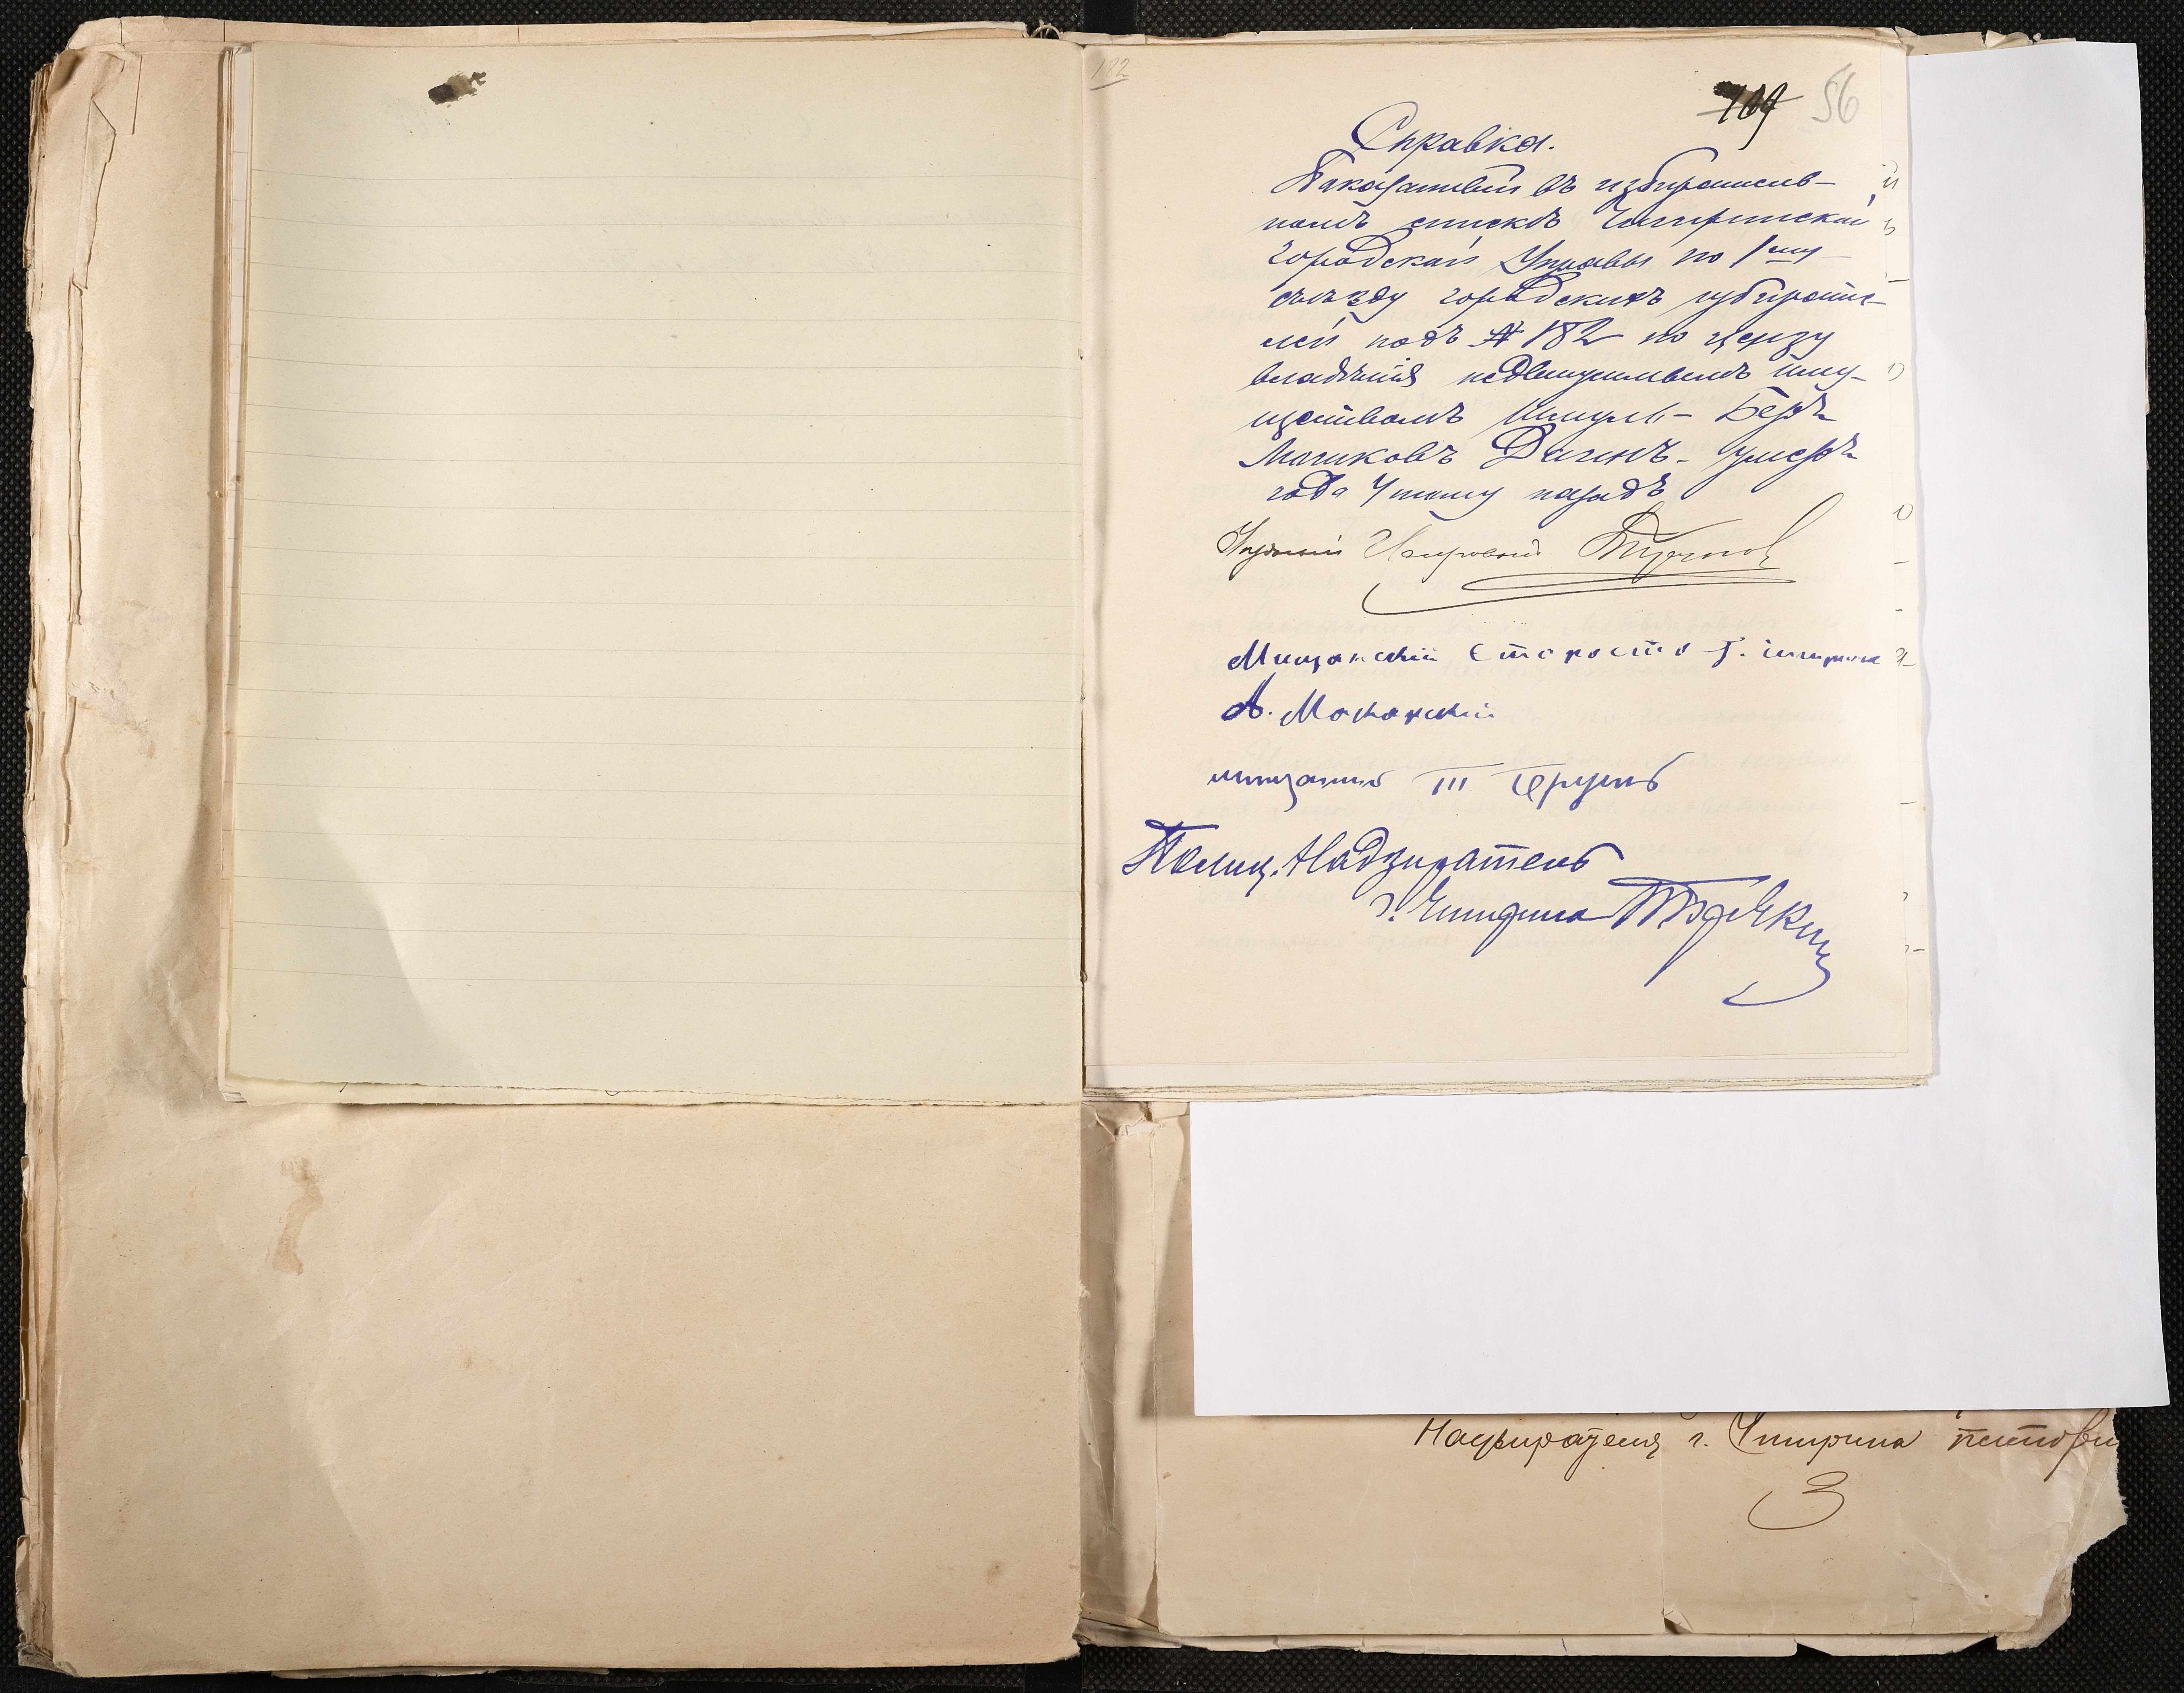 122
109 56
Справка.
Показанный въ избиратель-
номъ списке Чигиринской
городской Управы по 1му
съезду городскихъ избирате-
лей подъ № 182 по цензу
владѣнія недвижимымъ иму-
ществомъ Шмуль-Беръ
Мошковъ умеръ
года 4 тому назадъ
Мищанский Староста г. Чигирина
А. Макарский
мищанинъ
Полиц. Надзиратель
г. Чигирина
Надзирателя г. Чигирина